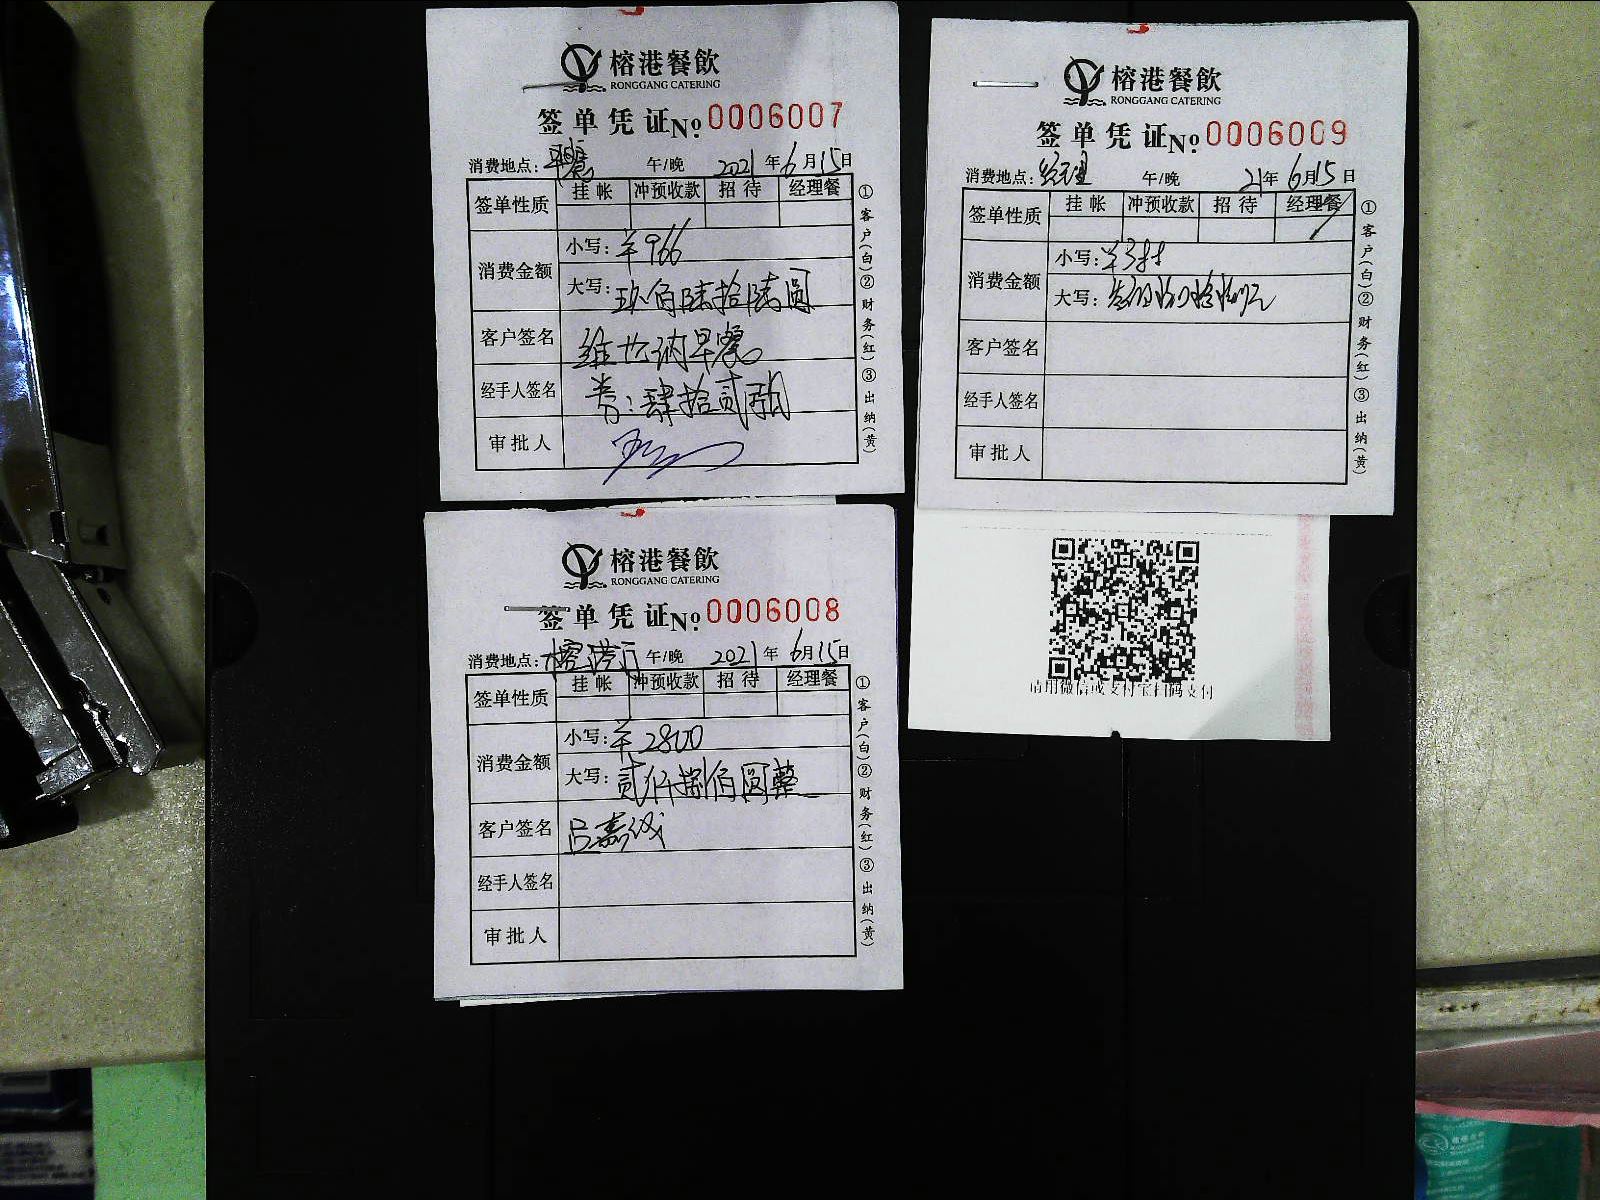 榕港餐飲
RONGGANG CATERING
签单凭证No.0006007
消费地点:早餐 午/晚 2021年6月15日
签单性质 挂帐 冲预收款 招待 经理餐
消费金额 小写:¥966
大写:玖佰陆拾陆圆
客户签名 维也纳早餐
经手人签名 券:肆拾贰张
审批人
①客户(白)②财务(红)③出纳(黄)
榕港餐飲
RONGGANG CATERING
签单凭证No.0006009
消费地点:经理 午/晚 21年6月15日
签单性质 挂帐 冲预收款 招待 经理餐
消费金额 小写:¥388
大写:叁佰捌拾捌元
客户签名
经手人签名
审批人
①客户(白)②财务(红)③出纳(黄)
请用微信或支付宝扫码支付
榕港餐飲
RONGGANG CATERING
签单凭证No.0006008
消费地点:榕港 午/晚 2021年6月15日
签单性质 挂帐 冲预收款 招待 经理餐
消费金额 小写:¥2800
大写:贰仟捌佰圆整
客户签名 吕嘉诚
经手人签名
审批人
①客户(白)②财务(红)③出纳(黄)